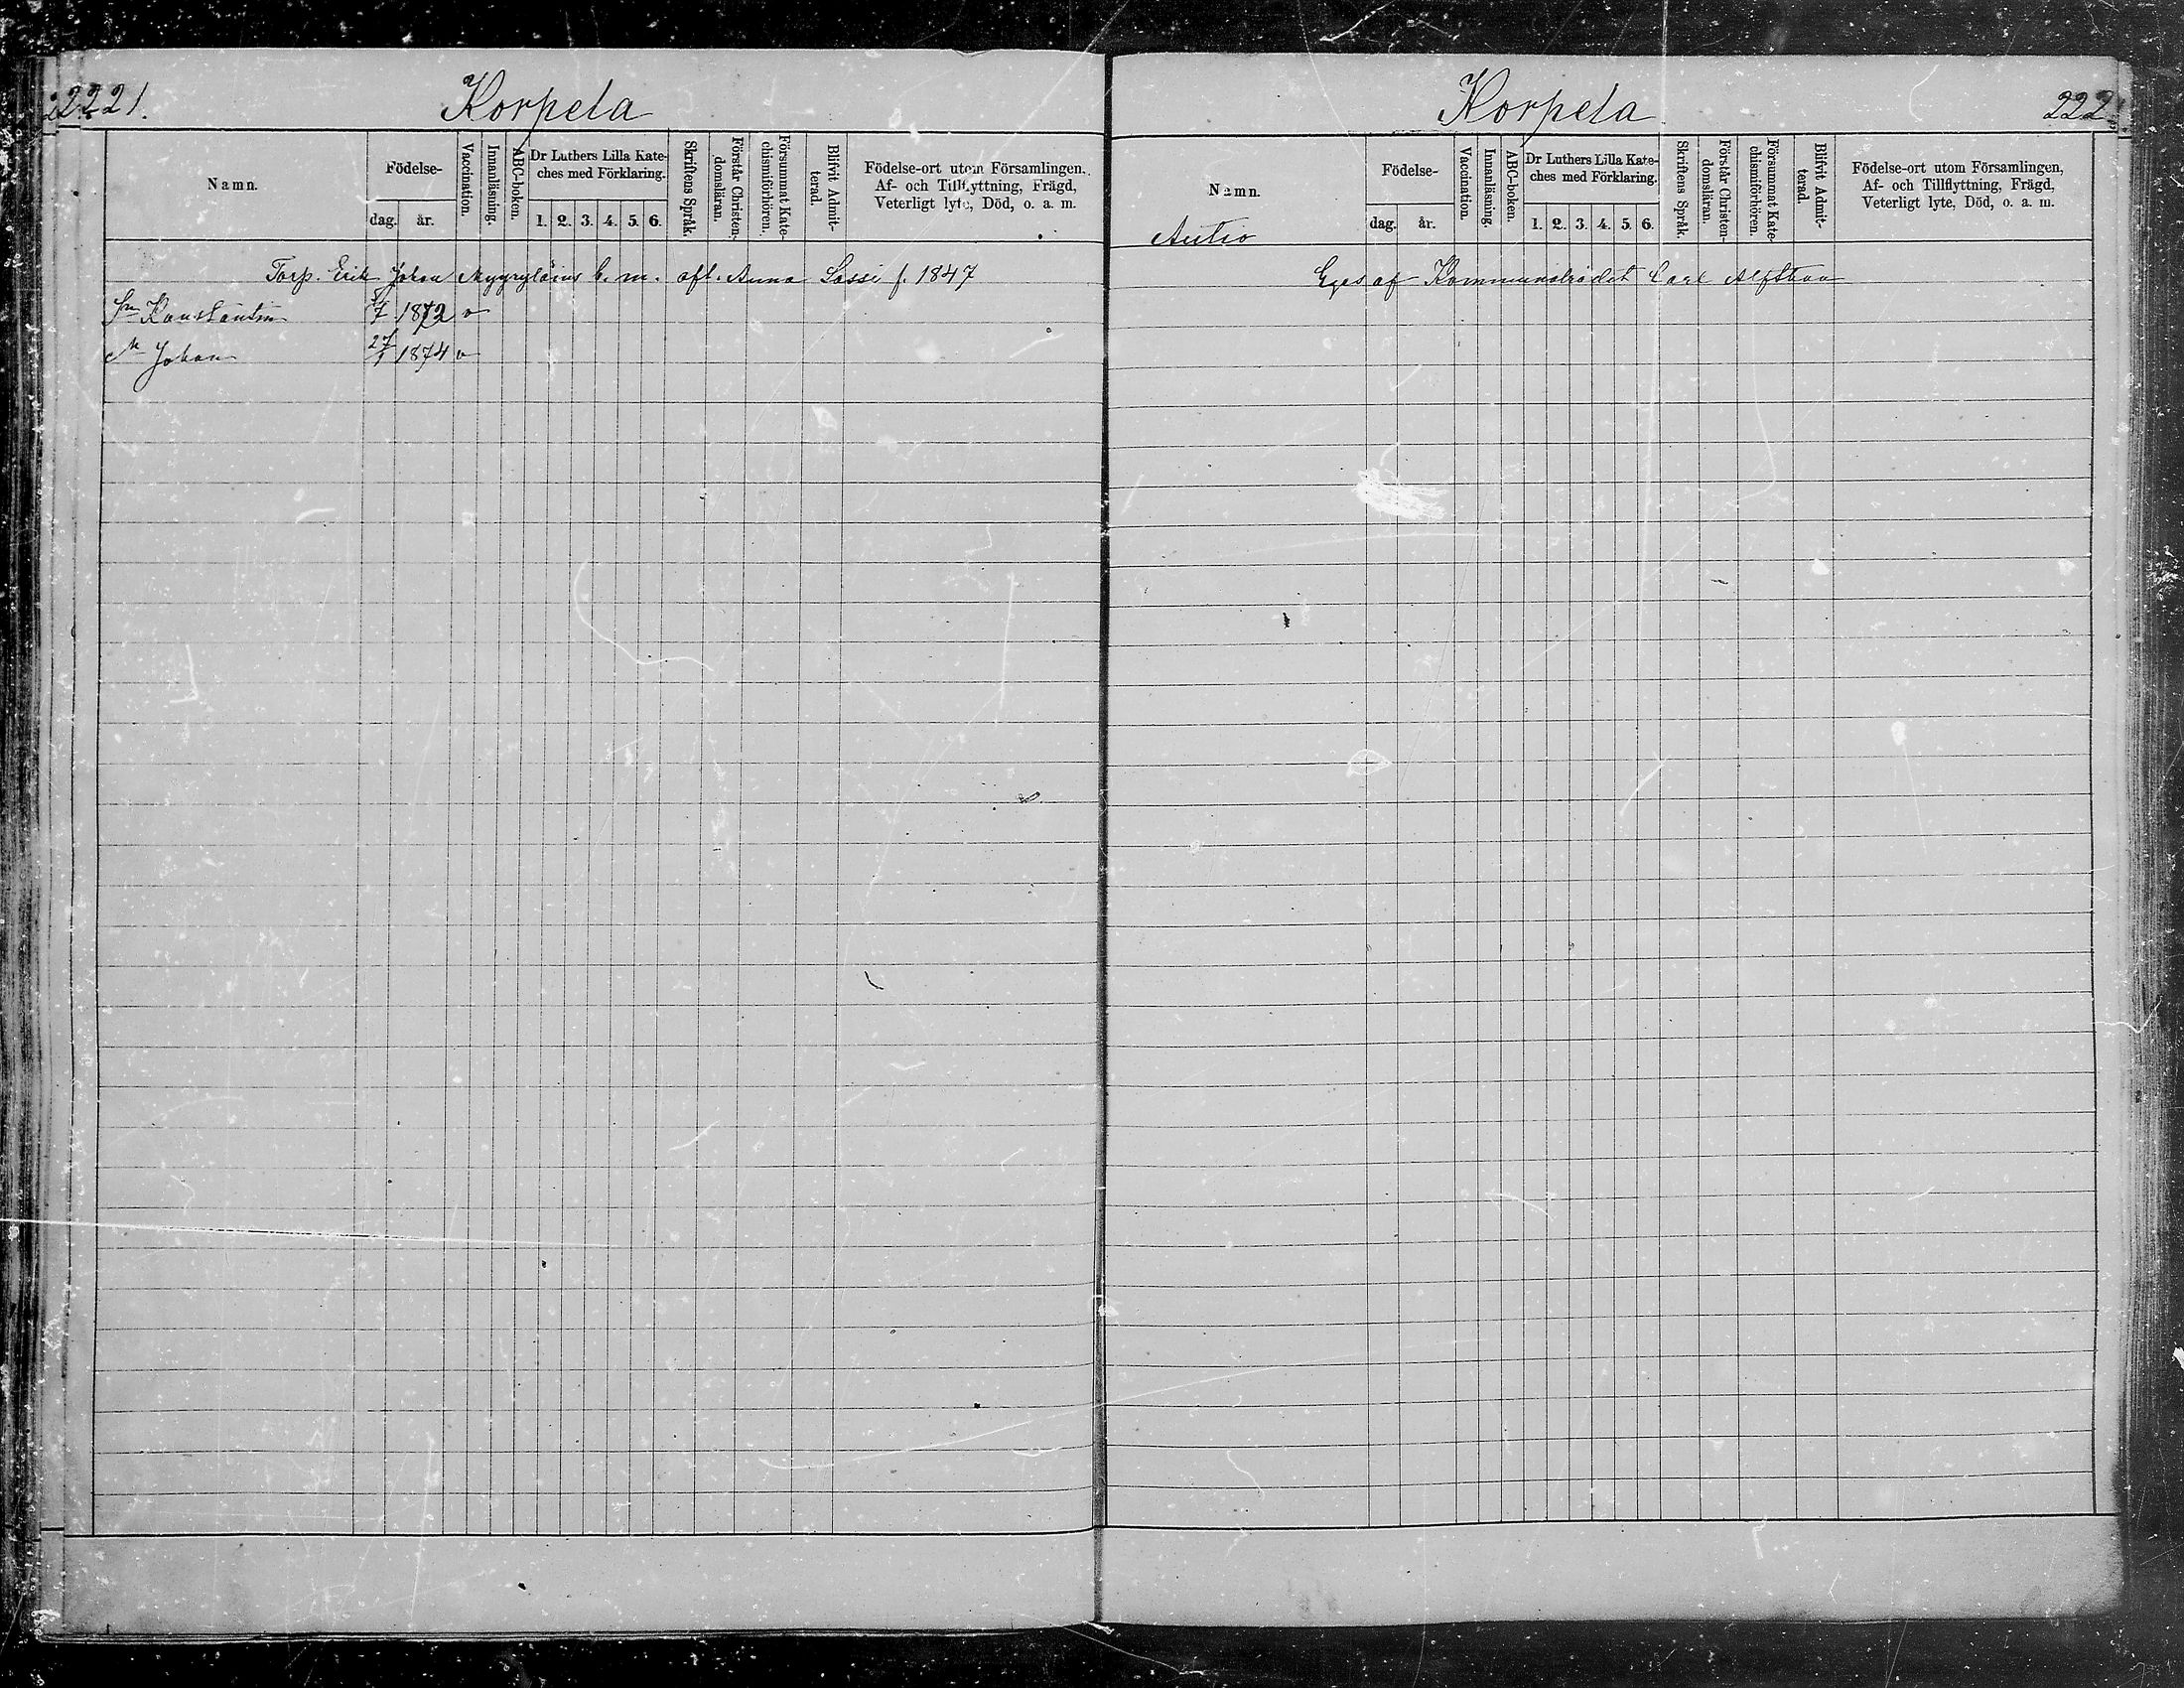 221.
Korpela
Namn.
Födelse-
dag. år.
Vaccination.
Innanläsning.
ABC-boken.
Dr Luthers Lilla Kate-
ches med Förklaring.
1. 2. 3. 4. 5. 6.
Skriftens Språk.
Förstår Christen-
domsläran.
Försummat Kate-
chismiförhören.
Blifvit Admit-
terad.
Födelse-ort utom Församlingen,
Af- och Tillflyttning, Frägd,
Veterligt lyte, Död, o. a. m.
Torp. Erik Johan b. m. aft. Anna Lassi f. 1847
Sn Konstantin 1872 v
Johan 27/1 1874 v
Korpela
222
Namn.
Autio
Födelse-
dag. år.
Vaccination.
Innanläsning.
ABC-boken.
Dr Luthers Lilla Kate-
ches med Förklaring.
1. 2. 3. 4. 5. 6.
Skriftens Språk.
Förstår Christen-
domsläran.
Försummat Kate-
chismiförhören.
Blifvit Admit-
terad.
Födelse-ort utom Församlingen,
Af- och Tillflyttning, Frägd,
Veterligt lyte, Död, o. a. m.
Eges af Kommunalrådet Carl